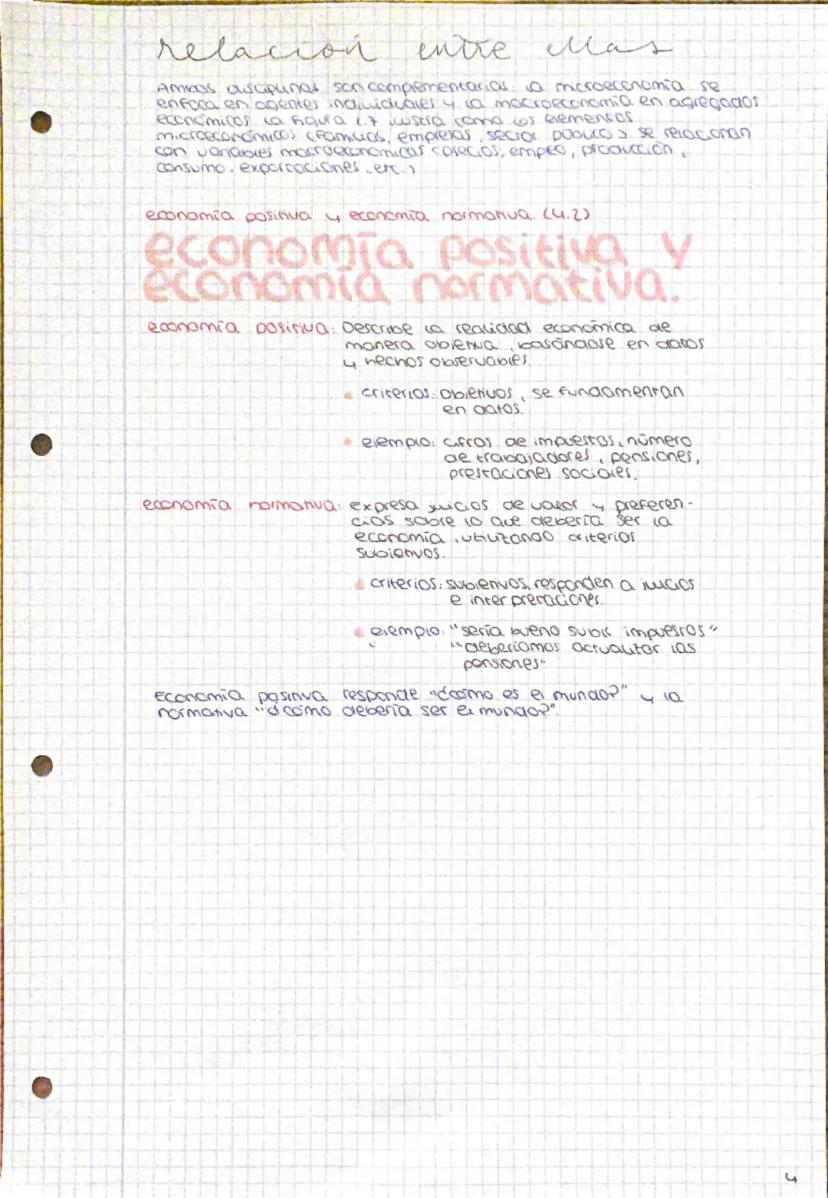 relación entre ellas
Ambas disciplinas son complementarias: la microeconomía se
enfoca en agentes individuales y la macroeconomía en agregados
económicos. La figura 1.7 ilustra cómo los elementos
microeconómicos (familias, empresas, sector público) se relacionan
con variables macroeconómicas (precios, empleo, producción,
consumo, exportaciones, etc.)
economía positiva y economía normativa. (4.2)
economía positiva y
economía normativa.
economía positiva: Describe la realidad económica de
manera objetiva, basándose en datos
y hechos observables.
criterios: objetivos, se fundamentan
en datos.
ejemplo: cifras de impuestos, número
de trabajadores, pensiones,
prestaciones sociales.
economía normativa: expresa juicios de valor y preferen-
cias sobre lo que debería ser la
economía, utilizando criterios
subjetivos.
criterios: subjetivos, responden a juicios
e interpretaciones.
ejemplo: "sería bueno subir impuestos"
"deberíamos actualizar las
pensiones"
Economía positiva responde "¿cómo es el mundo?" y la
normativa "¿cómo debería ser el mundo?"
4